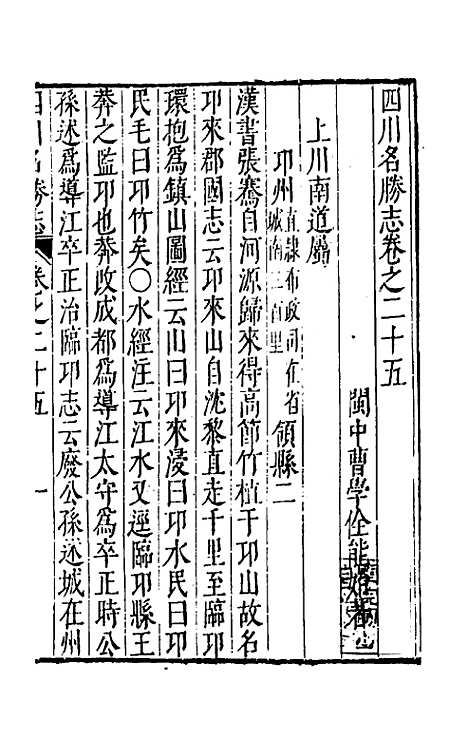 四川名勝志卷之二十五
閩中曹學佺能始著
上川南道屬
邛州直隸布政司在省城南三百里領縣二
漢書張騫自河源歸來得高節竹植于邛山故名
邛來郡國志云邛來山自沈黎直走千里至臨邛
環抱為鎮山圖經云山曰邛來浸曰邛水民曰邛
民毛曰邛竹矣〇水經注云江水又逕臨邛縣王
莽之監邛也莽改成都為導江太守為卒正時公
孫述為導江卒正治臨邛志云廢公孫述城在州
四川名勝志 卷之二十五 一